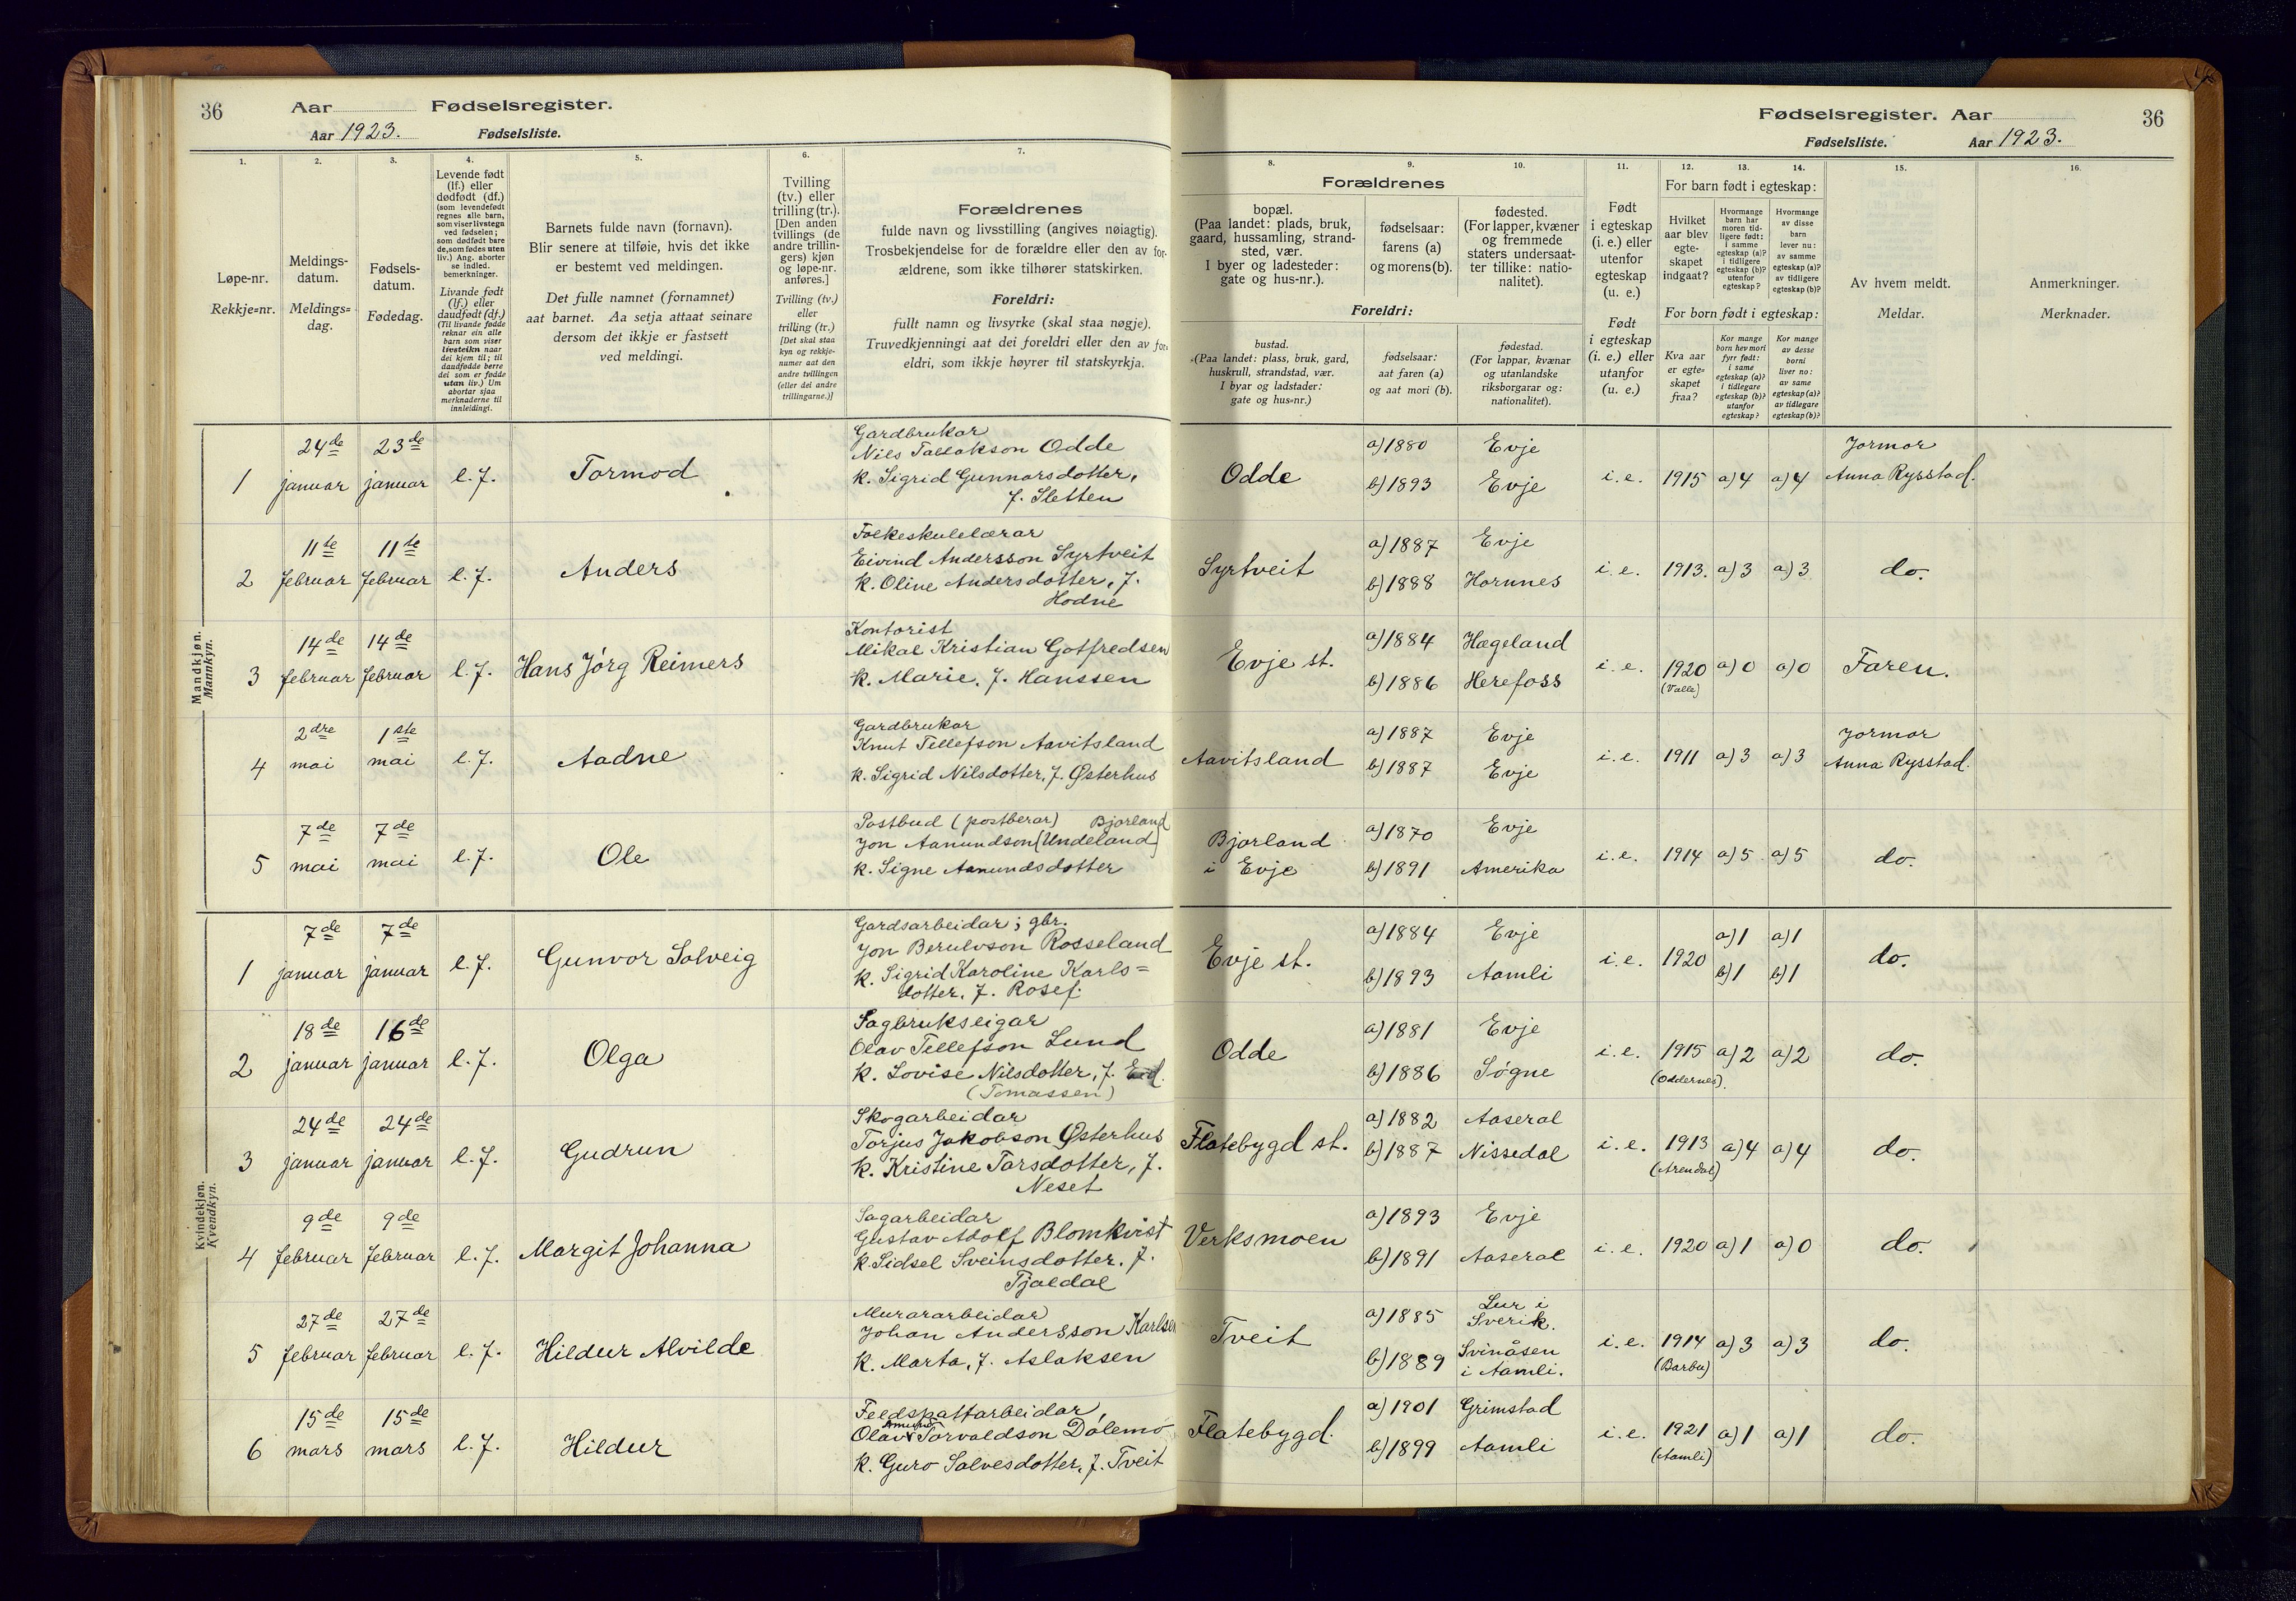 36 Aar Fødselsregister.
Aar 1923. Fødselsliste.
1. 2. 3. 4. 5. 6. 7.
Løpe-nr.
Rekkje=nr.
Meldings-
datum.
Meldings=
dag.
Fødsels-
datum.
Fødedag.
Levende født
(lf.) eller
dødfødt (df.)
(som levendefødt
regnes alle barn,
som viser livstegn
ved fødselen;
som dødfødt bare
de, som fødes uten
liv.) Ang. aborter
se indled.
bemerkninger.
Livande født
(lf.) eller
daudfødt (df.)
(Til livande fødde
reknar ein alle
barn som viser
livsteikn naar
dei kjem til; til
daudfødde berre
dei som er fødde
utan liv.) Um
abortar sjaa
merknaderne til
innleidingi.
Barnets fulde navn (fornavn).
Blir senere at tilføie, hvis det ikke
er bestemt ved meldingen.
Det fulle namnet (fornamnet)
aat barnet. Aa setja attaat seinare
dersom det ikkje er fastsett
ved meldingi.
Tvilling
(tv.) eller
trilling (tr.).
[Den anden
tvillings (de
andre trillin-
gers) kjøn
og løpe-nr.
anføres.]
Tvilling (tv.)
eller
trilling (tr.)
[Det skal staa
kyn og rekkje-
numer aat den
andre tvillingen
(eller dei andre
trillingarne.)]
Forældrenes
fulde navn og livsstilling (angives nøiagtig).
Trosbekjendelse for de forældre eller den av for-
ældrene, som ikke tilhører statskirken.
Foreldri:
fullt namn og livsyrke (skal staa nøgje).
Truvedkjenningi aat dei foreldri eller den av for-
eldri, som ikkje høyrer til statskyrkja.
Mandkjøn.
Mannkyn.
1
24de januar
23de januar
l. f.
Tormod
Gardbrukar
Nils Tallakson Odde
k. Sigrid Gunnarsdotter,
f. Sletten
2
11te februar
11te februar
l. f.
Anders
Folkeskulelærar
Eivind Andersson Syrtveit
k. Oline Andersdotter, f.
Hodne
3
14de februar
14de februar
l. f.
Hans Jórg Reimers
Kontorist
Mikal Kristian Gotfredsen
k. Marie, f. Hanssen
4
2dre mai
1ste mai
l. f.
Aadne
Gardbrukar
Knut Tellefson Aavitsland
k. Sigrid Nilsdotter, f. Østerhus
5
7de mai
7de mai
l. f.
Ole
Postbud (postberar) Bjorland
Jon Aanundson (Undeland)
k. Signe Aanundsdotter
Kvindekjøn.
Kvendkyn.
1
7de januar
7de januar
l. f.
Gunvor Solveig
Gardsarbeidar; gbr.
Jon Berulvson Rosseland
k. Sigrid Karoline Karls=
dotter, f. Rosef.
2
18de januar
16de januar
l. f.
Olga
Sagbrukseigar
Olav Tellefson Lund
k. Lovise Nilsdotter, f.
(Tomassen)
3
24de januar
24de januar
l. f.
Gudrun
Skogarbeidar
Torjus Jakobson Østerhus
k. Kristine Tarsdotter, f.
Neset
4
9de februar
9de februar
l. f.
Margit Johanna
Sagarbeidar
Gustav Adolf Blomkvist
k. Sidsel Sveinsdotter, f.
Tjaldal
5
27de februar
27de februar
l. f.
Hildur Alvilde
Murararbeidar
Johan Andersson Karlsen
k. Marta, f. Aslaksen
6
15de mars
15de mars
l. f.
Hildur
Feldspattarbeidar,
Olav Torvaldson Dólemo
k. Guro Salvesdotter, f. Tveit
Fødselsregister. Aar 36
Fødselsliste. Aar 1923.
8. 9. 10. 11. 12. 13. 14. 15. 16.
Forældrenes
bopæl.
(Paa landet: plads, bruk,
gaard, hussamling, strand-
sted, vær.
I byer og ladesteder:
gate og hus-nr.).
fødselsaar:
farens (a)
og morens (b).
fødested.
(For lapper, kvæner
og fremmede
staters undersaat-
ter tillike: natio-
nalitet).
Foreldri:
bustad.
(Paa landet: plass, bruk, gard,
huskrull, strandstad, vær.
I byar og ladstader:
gate og hus=nr.)
fødselsaar:
aat faren (a)
og aat mori (b).
fødestad.
(For lappar, kvænar
og utanlandske
riksborgarar og:
nationalitet).
Født
i egteskap
(i. e.) eller
utenfor
egteskap
(u. e.)
Født
i egteskap
(i. e.) eller
utanfor
(u. e.)
For barn født i egteskap:
Hvilket
aar blev
egte-
skapet
indgaat?
Hvormange
barn har
moren tid-
ligere født:
i samme
egteskap (a)?
i tidligere
egteskap (b)?
utenfor
egteskap?
Hvormange
av disse
barn
lever nu:
av samme
egteskap (a)?
av tidligere
egteskap (b)?
For born født i egteskap:
Kva aar
er egte=
skapet
fraa?
Kor mange
born hev mori
fyrr født:
i same
egteskap (a)?
i tidlegare
egteskap (b)?
utanfor
egteskap?
Kor mange
av desse
borni
liver no:
av same
egteskap (a)?
av tidlegare
egteskap (b)?
Av hvem meldt.
Meldar.
Anmerkninger.
Merknader.
Odde
a) 1880 Evje
b) 1893 Evje
i. e. 1915 a) 4 a) 4
Jormor
Anna Rysstad.
Syrtveit
a) 1887 Evje
b) 1888 Hornnes
i. e. 1913. a) 3 a) 3 do.
Evje st.
a) 1884 Hægeland
b) 1886 Herefoss
i. e. 1920 a) 0 a) 0 Faren.
(Valle)
Aavitsland
a) 1887 Evje
b) 1887 Evje
i. e. 1911 a) 3 a) 3
Jormor
Anna Rysstad.
Bjorland
i Evje
a) 1870 Evje
b) 1891 Amerika
i. e. 1914 a) 5 a) 5 do.
Evje st.
a) 1884 Evje
b) 1893 Aamli
i. e. 1920
a) 1 a) 1
b) 1 b) 1
do.
Odde
a) 1881 Evje
b) 1886 Sógne
i. e. 1915 a) 2 a) 2 do.
(Oddernes).
Flatebygd st.
a) 1882 Aaseral
b) 1887 Nissedal
i. e. 1913 a) 4 a) 4 do.
(Arendal)
Verksmoen
a) 1893 Evje
b) 1891 Aaseral
i. e. 1920 a) 1 a) 0 do.
Tveit
a) 1885 Lur i
Sverik.
b) 1889 Svinåsen
i Aamli.
i. e. 1914 a) 3 a) 3 do.
(Barbu)
Flatebygd.
a) 1901 Grimstad
b) 1899 Aamli
i. e. 1921 a) 1 a) 1 do.
(Aamli)